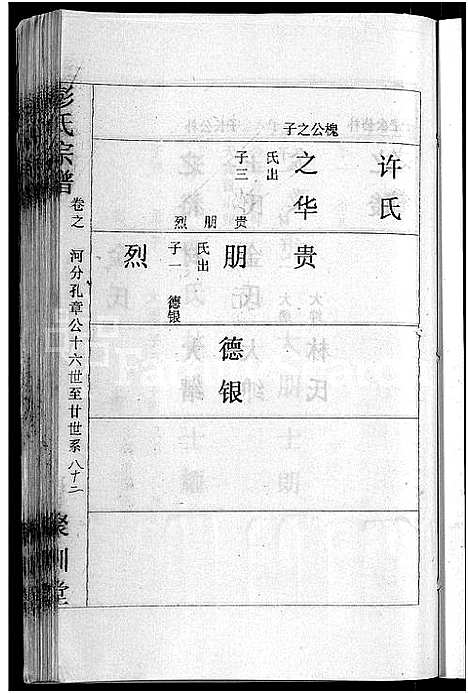 槐公之子
许氏
之华
氏出
子三
贵
朋
烈
贵
朋
氏出
子一
德银
烈
德银
彭氏宗谱
卷之
河分孔章公十六世至廿世系
八十二
聚训堂